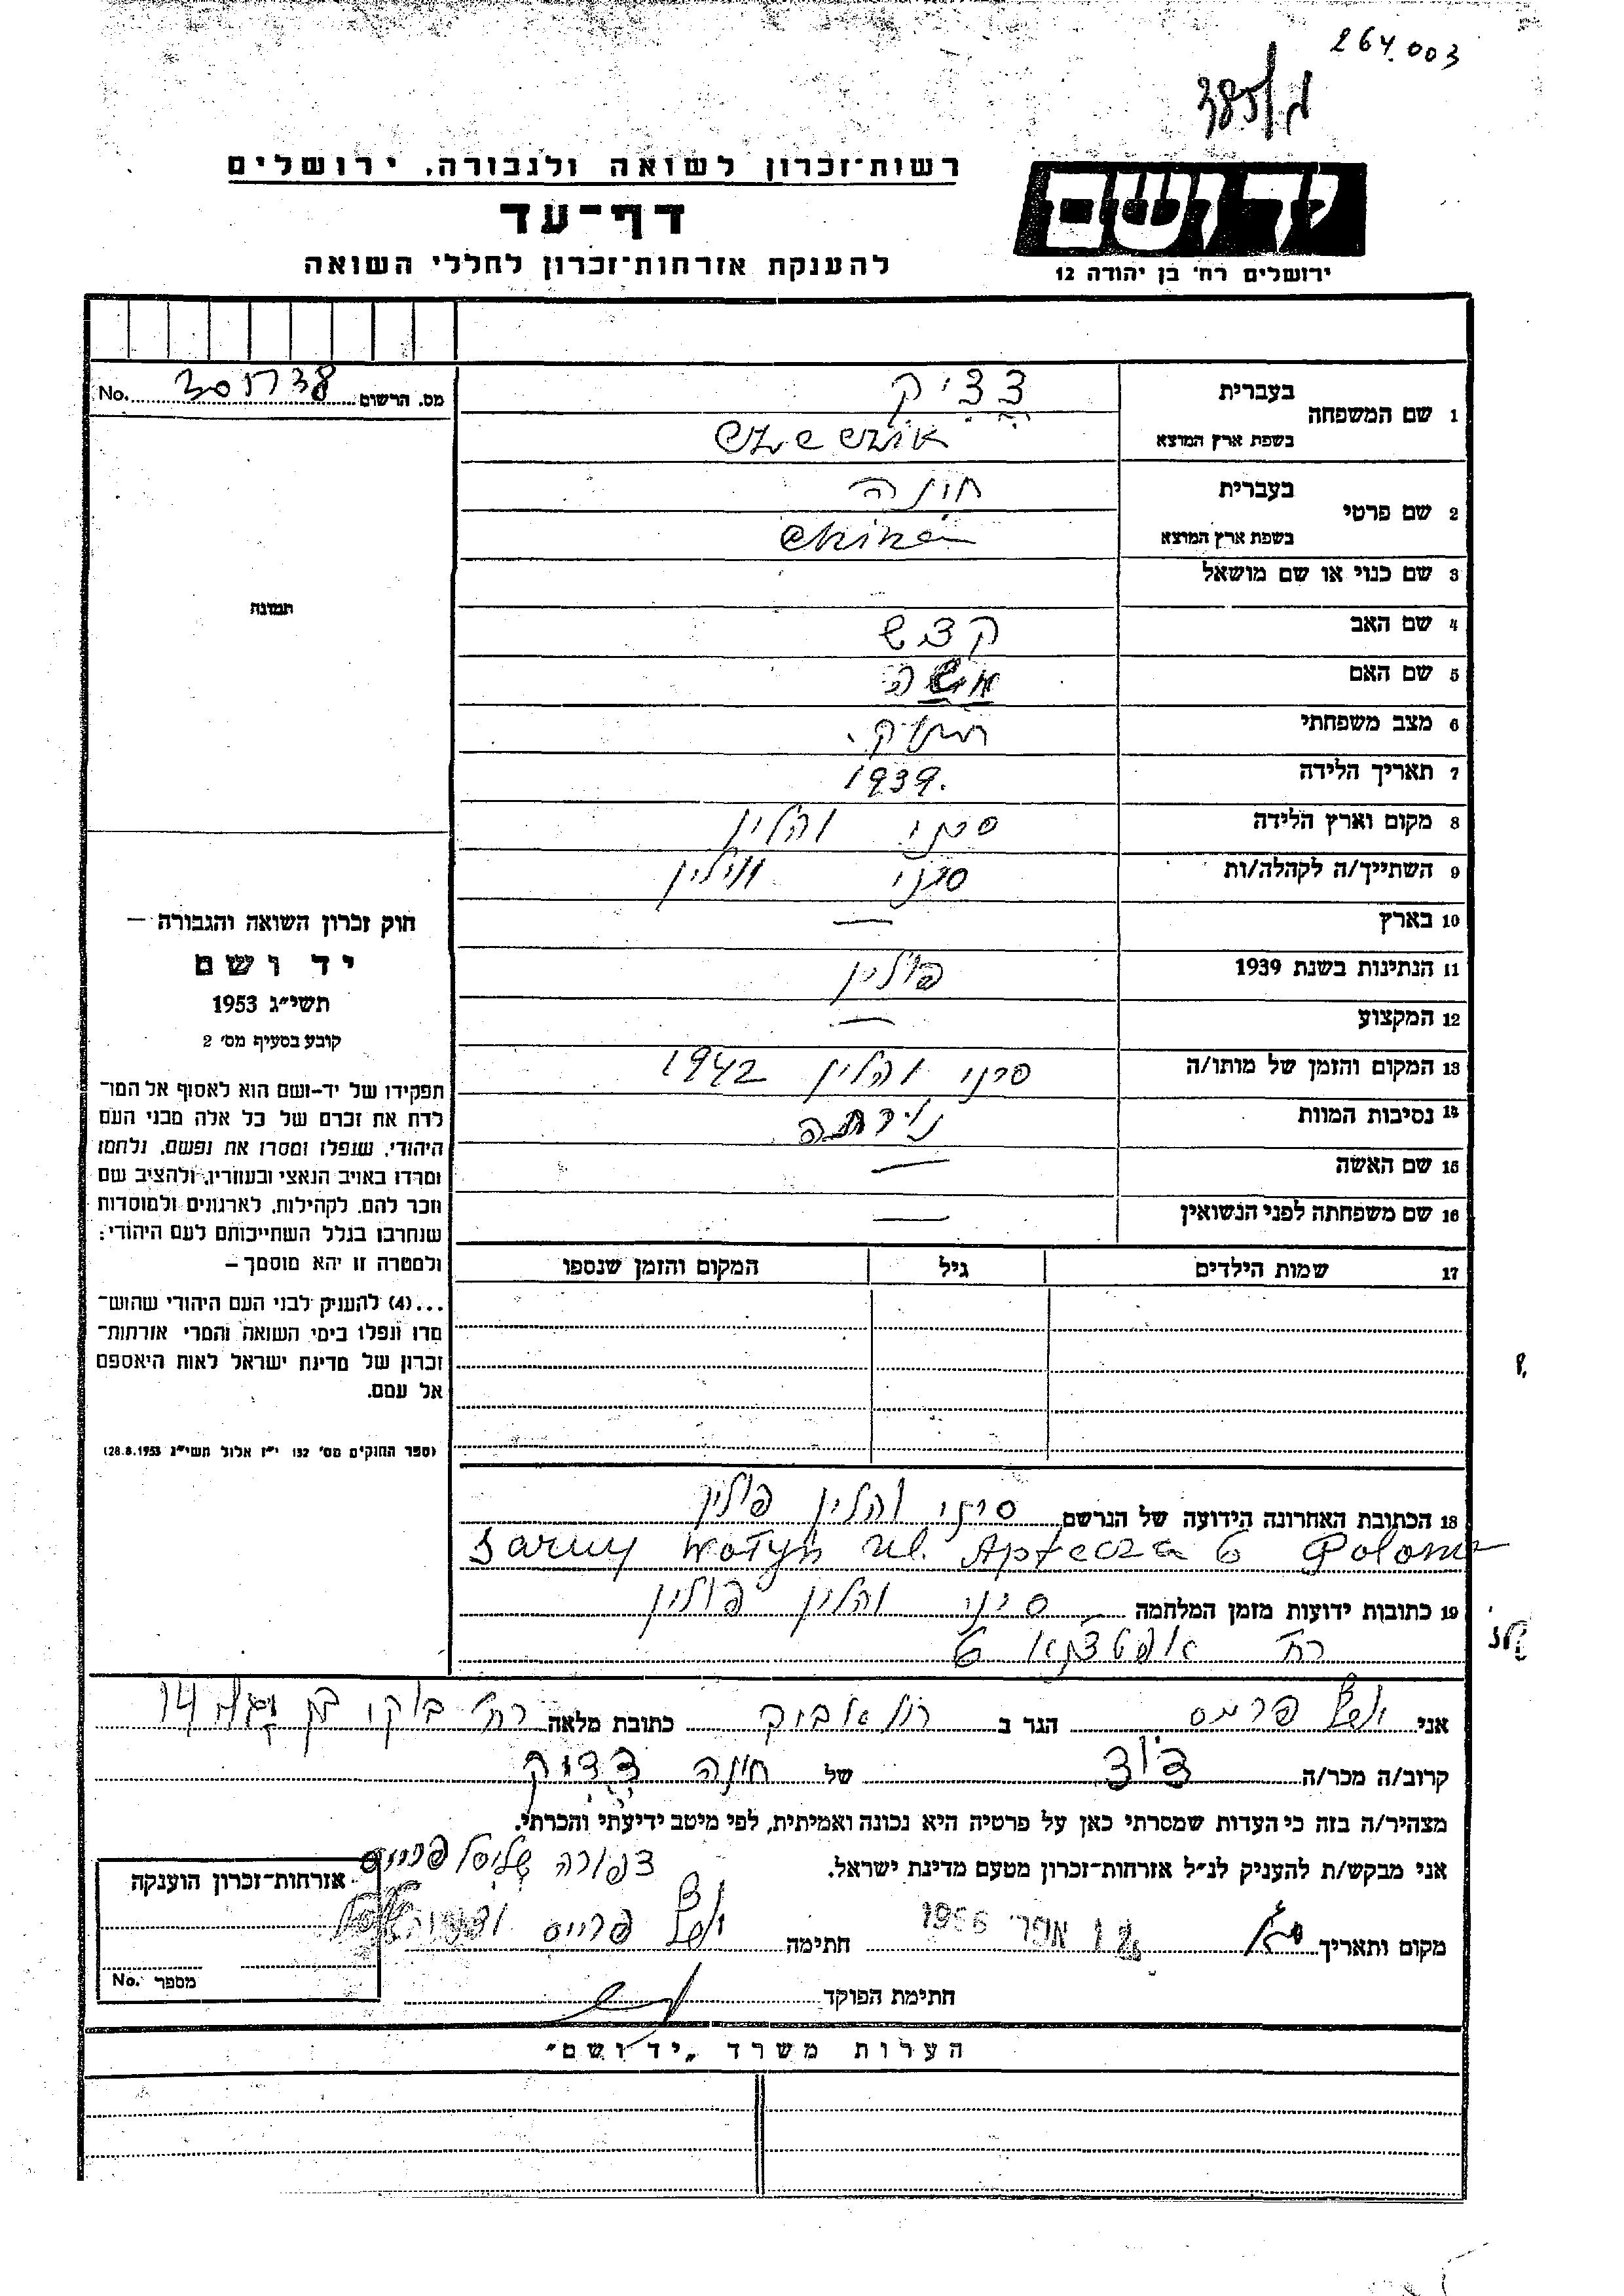 264.003
רשות־זכרון לשואה ולגבורה, ירושלים
דף־עד
להענקת אזרחות־זכרון לחללי השואה
יד ושם
ירושלים רח' בן יהודה 12
מס. הרשום No.
1 שם המשפחה בעברית צ'צ'יק
בשפת ארץ המוצא
2 שם פרטי בעברית חונה
בשפת ארץ המוצא
3 שם כנוי או שם מושאל
תמונה
4 שם האב
5 שם האם
6 מצב משפחתי תינוק.
7 תאריך הלידה 1939.
8 מקום וארץ הלידה סרני והלין
9 השתייך/ה לקהלה/ות סרני ווילין
10 בארץ —
11 הנתינות בשנת 1939 פולין
12 המקצוע —
13 המקום והזמן של מותו/ה סרני והלין 1942
14 נסיבות המוות נירתה
15 שם האשה —
16 שם משפחתה לפני הנשואין —
17 שמות הילדים גיל המקום והזמן שנספו
חוק זכרון השואה והגבורה —
יד ושם
תשי״ג 1953
קובע בסעיף מס' 2
תפקידו של יד-ושם הוא לאסוף אל המו־
לדת את זכרם של כל אלה מבני העם
היהודי, שנפלו ומסרו את נפשם, נלחמו
ומרדו באויב הנאצי ובעוזריו, ולהציב שם
וזכר להם, לקהילות, לארגונים ולמוסדות
שנחרבו בגלל השתייכותם לעם היהודי;
ולמטרה זו יהא מוסמך –
...(4) להעניק לבני העם היהודי שהוש־
מדו ונפלו בימי השואה והמרי אזרחות־
זכרון של מדינת ישראל לאות היאספם
אל עמם.
(ספר החוקים מס' 132 י״ז אלול תשי״ג 28.8.1953)
18 הכתובת האחרונה הידועה של הנרשם סרני והלין פולין
Sarny Wołyń ul. Apteczna 6 Polonia
19 כתובות ידועות מזמן המלחמה סרני והלין פולין
רח' 6
אני פריס הגר ב תל אביב כתובת מלאה רח' 14
קרוב/ה מכר/ה דוד של חונה צ'צ'יק
מצהיר/ה בזה כי העדות שמסרתי כאן על פרטיה היא נכונה ואמיתית, לפי מיטב ידיעתי והכרתי.
אני מבקש/ת להעניק לנ״ל אזרחות־זכרון מטעם מדינת ישראל.
מקום ותאריך אפר' 1956 חתימה פרייס
חתימת הפוקד
אזרחות־זכרון הוענקה
מספר No.
הערות משרד „יד ושם״